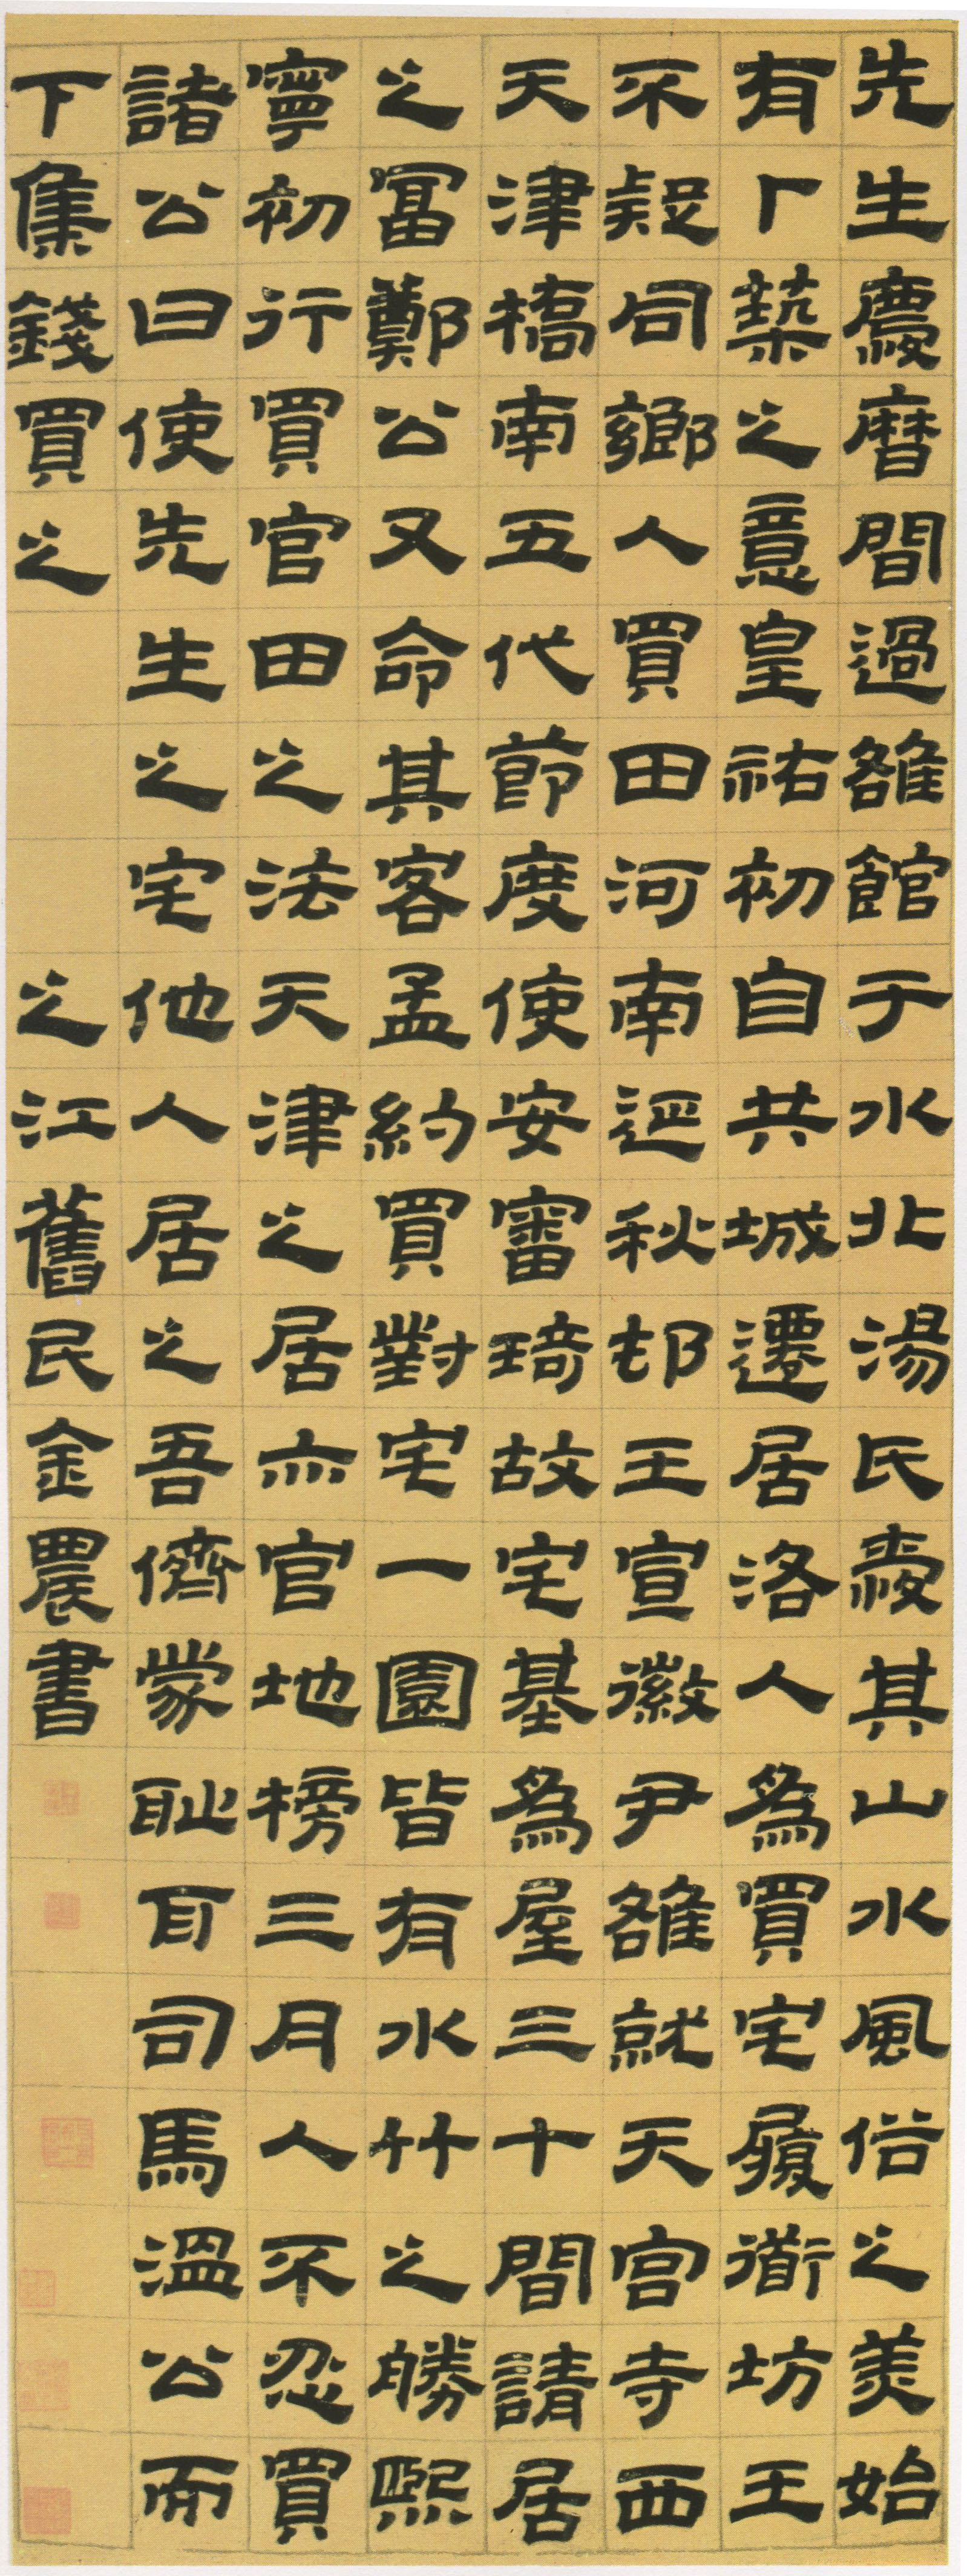 先生慶曆間過雒館于水北湯氏愛其山水風俗之美始
有卜築之意皇祐初自共城遷居洛人為買宅履衜坊王
不疑同鄉人買田河南延秋邨王宣徽尹雒就天宮寺西
天津橋南五代節度使安審琦故宅基為屋三十間請居
之富鄭公又命其客孟約買對宅一園皆有水竹之勝熙
寧初行買官田之法天津之居亦官地榜三月人不忍買
諸公曰使先生之宅他人居之吾儕蒙耻司馬溫公而
下集錢買之 之江舊民金農書